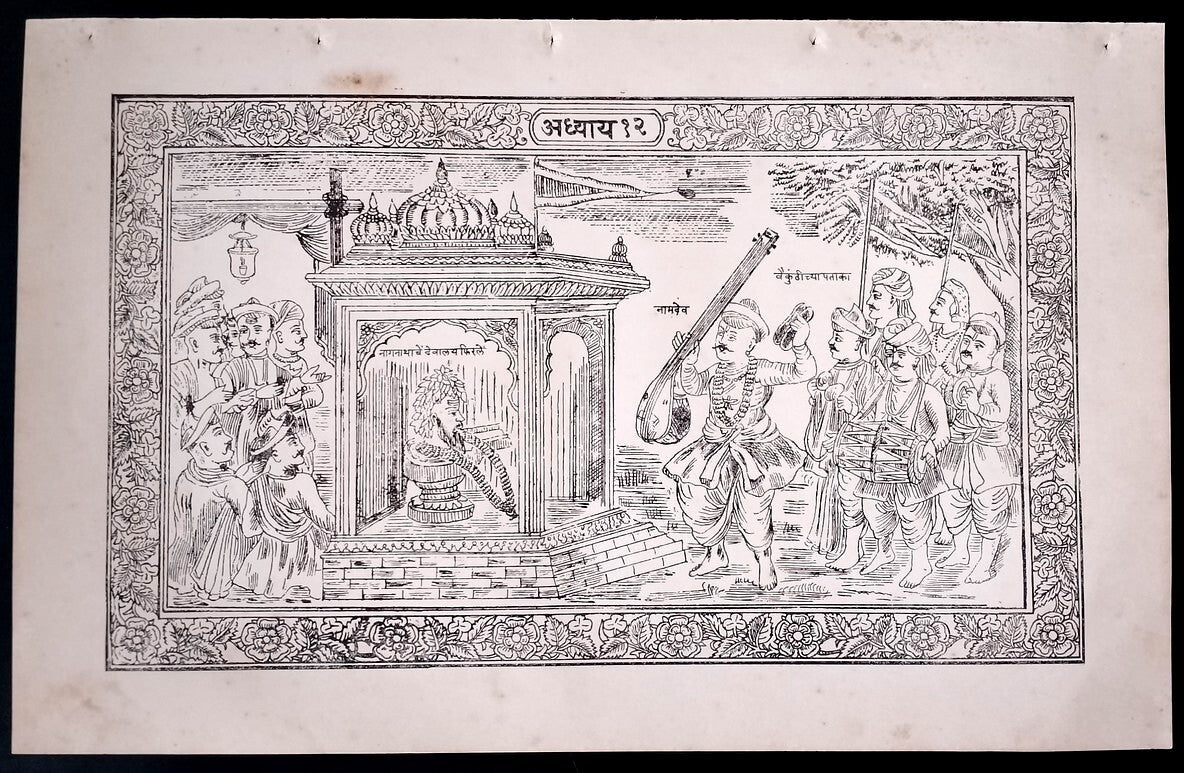 अध्याय १२
नामदेव
वैकुंठीच्या पताका
नागनाथाचें देवालय फिरलें